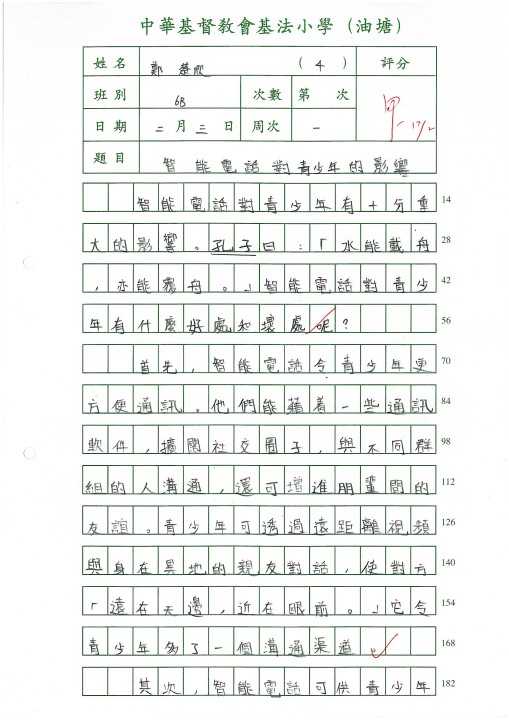 中華基督教會基法小學（油塘）
姓名 鄭楚欣 （4） 評分
班別 6B 次數 第 次 甲- 17/2
日期 二月三日 周次 一
題目 智能電話對青少年的影響
智能電話對青少年有十分重 14
大的影響。孔子曰：「水能載舟 28
，亦能覆舟。」智能電話對青少 42
年有什麼好處和壞處呢？ 56
首先，智能電話令青少年更 70
方便通訊。他們能藉着一些通訊 84
軟件，擴闊社交圈子，與不同群 98
組的人溝通，還可增進朋輩間的 112
友誼。青少年可透過遠距離視頻 126
與身在異地的親友對話，使對方 140
「遠在天邊，近在眼前。」它令 154
青少年多了一個溝通渠道。 168
其次，智能電話可供青少年 182